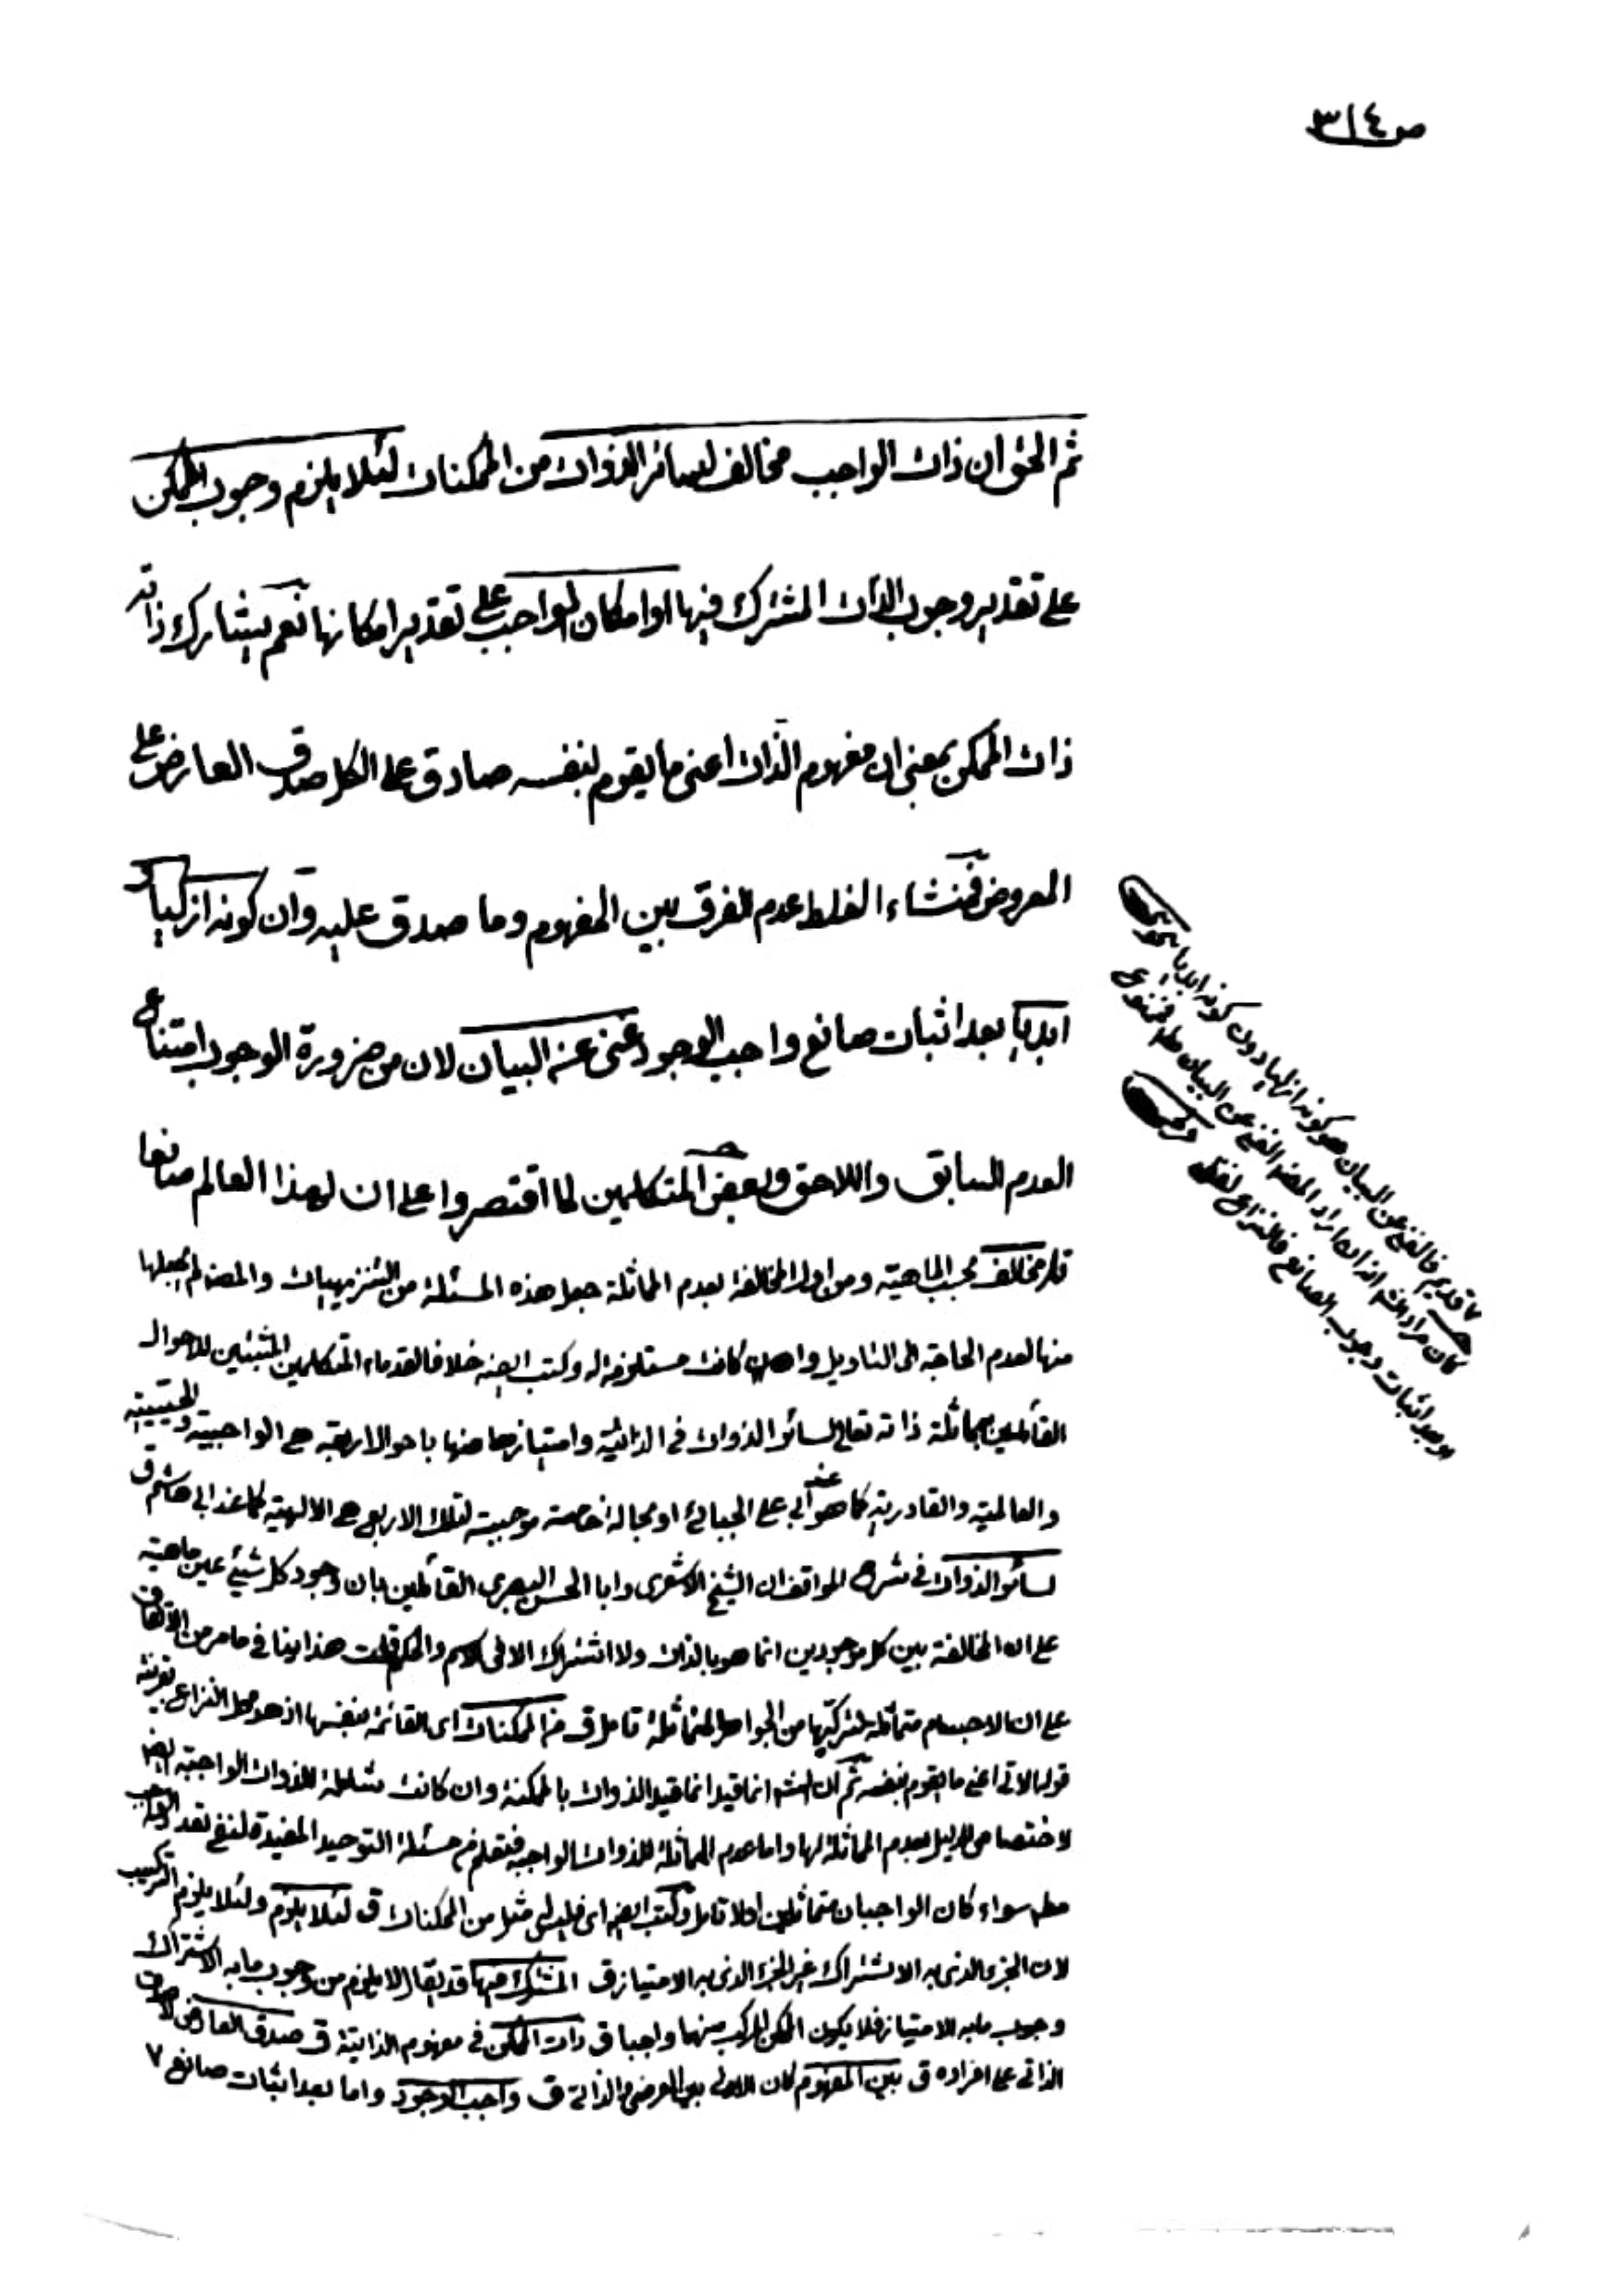 ص ٣١٤
ثم الحق ان ذات الواجب مخالف لسائر الذوات من الممكنات لئلا يلزم وجوب الممكن
على تقدير وجوب الذات المشترك فيها او امكان الواجب على تقدير امكانها نعم يشارك ذاته
ذات الممكن بمعنى ان مفهوم الذات اعنى ما يقوم لنفسه صادق على الكل صدق العارض على
المعروض فمنشاء الغلط عدم الفرق بين المفهوم وما صدق عليه وان كونه ازليا و
ابديا بعد اثبات صانع واجب الوجود غنى عن البيان لان من ضرورة الوجوب امتناع
العدم السابق واللاحق وبعض المتكلمين لما اقتصروا على ان لهذا العالم صانعا
قوله مخالف بحسب الماهية ومن اول المخالفة بعدم المماثلة جعل هذه المسئلة من التنزيهيات والمصنف لم يجعلها
منها لعدم الحاجة الى التاويل وان كانت مستلزمة له وكتب ايضا خلافا لقدماء المتكلمين المثبتين للاحوال
القائلين بمماثلة ذاته تعالى لسائر الذوات فى الذاتية وامتيازها منها باحوال اربعة هى الواجبية والحيية
والعالمية والقادرية كما هو عند ابى على الجبائى او بحالة خامسة موجبة لتلك الاربع هى الالهية كما عند ابى هاشم ق
لسائر الذوات فى شرح المواقف ان الشيخ الاشعرى وابا الحسين البصرى القائلين بان وجود كل شيئ عين ماهيته
على ان المخالفة بين كل موجودين انما هو بالذات ولا اشتراك الا فى الاسم والحكم قلت هذا ينافى ما مر من الاتفاق
على ان الاجسام متماثلة لتركبها من الجواهر المتماثلة تامل ق من الممكنات اى القائمة بنفسها اذ هو محل النزاع بقرينة
قوله الاتى اعنى ما يقوم بنفسه ثم ان انما قيد الذوات بالممكنة وان كانت شاملة للذوات الواجبة ايضا
لاختصاص الدليل بعدم المماثلة لها واما عدم المماثلة للذوات الواجبة فتعلم من مسئلة التوحيد المفيدة لنفى تعدد الواجب
سواء كان الواجبان متماثلين اولا تامل وكتب ايضا اى فليس مثل من الممكنات ق لئلا يلزم ولئلا يلزم التركيب
لان الجزء الذى به الاشتراك غير الجزء الذى به الامتياز ق المشترك فيها قد يقال لا يلزم من وجوب ما به الاشتراك
وجوب ما به الامتياز فلا يكون الممكن المركب منهما واجبا ق ذات الممكن فى مفهوم الذاتية ق صدق العارض لا صدق
الذاتى على افراده ق بين المفهوم كان الاولى بين العرضى والذاتى ق واجب الوجود واما بعد اثبات صانع ٧